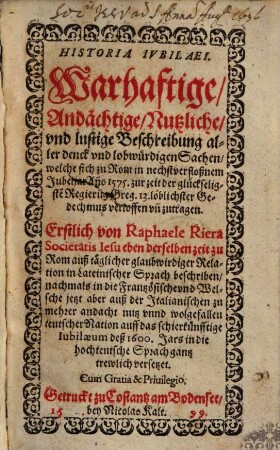 HISTORIA IVBILAEI.
Warhaftige/
Andächtige/Nutzliche/
vnd lustige Beschreibung al-
ler denck vnd lobwürdigen Sachen/
welche sich zu Rom in nechstverfloßnem
Jubeljar Año 1575. zur zeit der glückseligs-
stē Regierūg Greg. 13. löblichster Ge-
dechtnus verloffen vñ zutragen.
Erstlich von Raphaele Riera
Societatis Iesu eben derselben zeit zu
Rom auß täglicher glaubwirdiger Rela-
tion in Lateinischer Sprach beschriben/
nachmals in die Französische vnd Wel-
sche jetzt aber auß der Italianischen zu
mehrer andacht nutz vnnd wolgefallen
teutscher Nation auff das schierkünfftige
Iubilæum deß 1600. Jars in die
hochteutsche Sprach gantz
trewlich versetzet.
Cum Gratia & Priuilegio,
Getruckt zu Costantz am Bodensee/
15 bey Nicolao Kalt. 99.